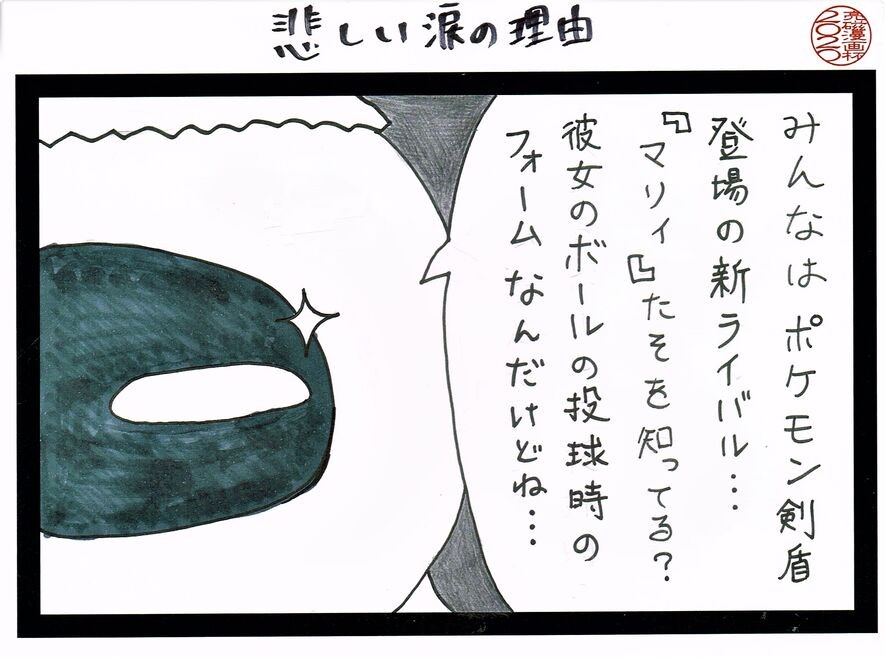 悲しい涙の理由
みんなはポケモン剣盾
登場の新ライバル…
『マリィ』たそを知ってる?
彼女のボールの投球時の
フォームなんだけどね…
2020